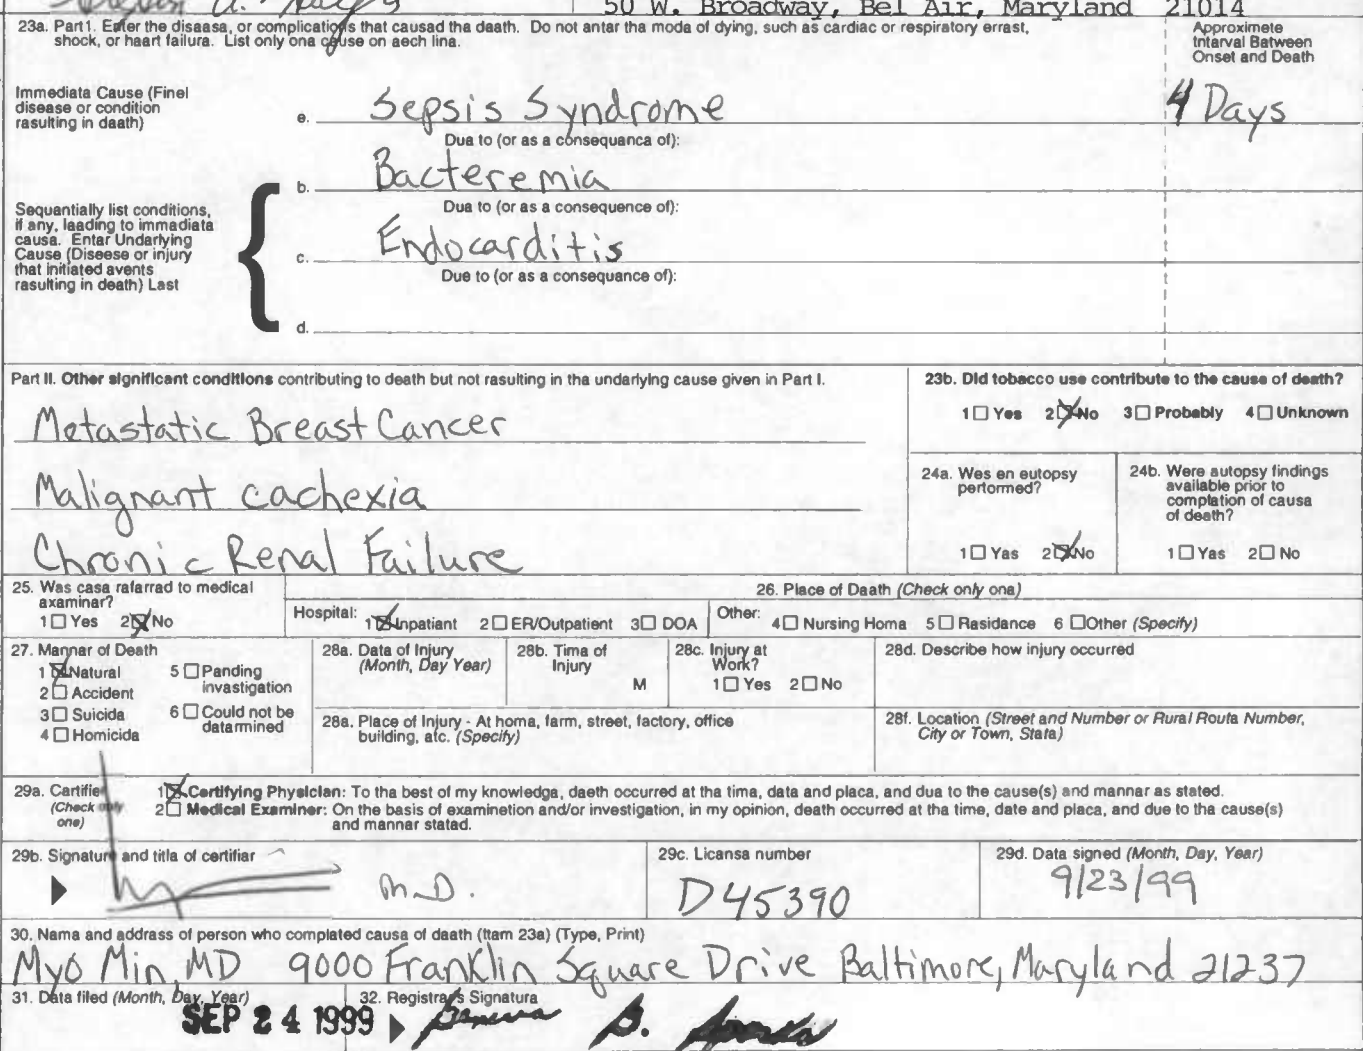 50 W. Broadway, Bel Air, Maryland 21014
23a. Part1. Enter the disaasa, or complications that causad tha daath. Do not antar tha moda of dying, such as cardiac or respiratory errast,
shock, or haart failura. List only ona cause on aech lina.
Approximete
Intarval Batween
Onset and Death
Immediata Cause (Finel
disease or condition
rasulting in daath)
e. Sepsis Syndrome
4 Days
Dua to (or as a consequanca of):
b. Bacteremia
Dua to (or as a consequence of):
Sequantially list conditions,
if any, laading to immadiata
causa. Entar Undarlying
Cause (Diseese or injury
that initiated avents
rasulting in death) Last
c. Endocarditis
Due to (or as a consequance of):
d.
Part II. Other significant conditions contributing to death but not rasulting in tha undarlying cause given in Part I.
Metastatic Breast Cancer
Malignant cachexia
Chronic Renal Failure
23b. Did tobacco use contribute to the cause of death?
1 Yes 2 No 3 Probably 4 Unknown
24a. Wes en eutopsy
pertormed?
1 Yas 2 No
24b. Were autopsy findings
available prior to
complation of causa
of death?
1 Yas 2 No
25. Was casa rafarrad to medical
axaminar?
1 Yes 2 No
26. Place of Daath (Check only ona)
Hospital: 1 Inpatient 2 ER/Outpatient 3 DOA Other: 4 Nursing Homa 5 Rasidance 6 Other (Specify)
27. Mannar of Death
1 Natural 5 Panding
invastigation
2 Accident
3 Suicida 6 Could not be
datarmined
4 Homicida
28a. Data of Injury
(Month, Day Year)
28b. Tima of
Injury
M
28c. Injury at
Work?
1 Yes 2 No
28d. Describe how injury occurred
28a. Place of Injury - At homa, farm, street, factory, office
building, atc. (Specify)
28f. Location (Street and Number or Rural Routa Number,
City or Town, Stata)
29a. Certifie
(Check only
one)
1 Certifying Physician: To tha best of my knowledga, daeth occurred at tha tima, data and placa, and dua to the cause(s) and mannar as stated.
2 Medical Examiner: On the basis of examinetion and/or investigation, in my opinion, death occurred at tha time, date and placa, and due to tha cause(s)
and mannar statad.
29b. Signature and titla of certifiar
M.D.
29c. Licansa number
D45390
29d. Data signed (Month, Day, Year)
9/23/99
30. Name and address of person who complated causa of daath (Itam 23a) (Type, Print)
Myo Min, MD 9000 Franklin Square Drive Baltimore, Maryland 21237
31. Data filed (Month, Day, Year)
SEP 24 1999
32. Registrar's Signatura
Geneva B.